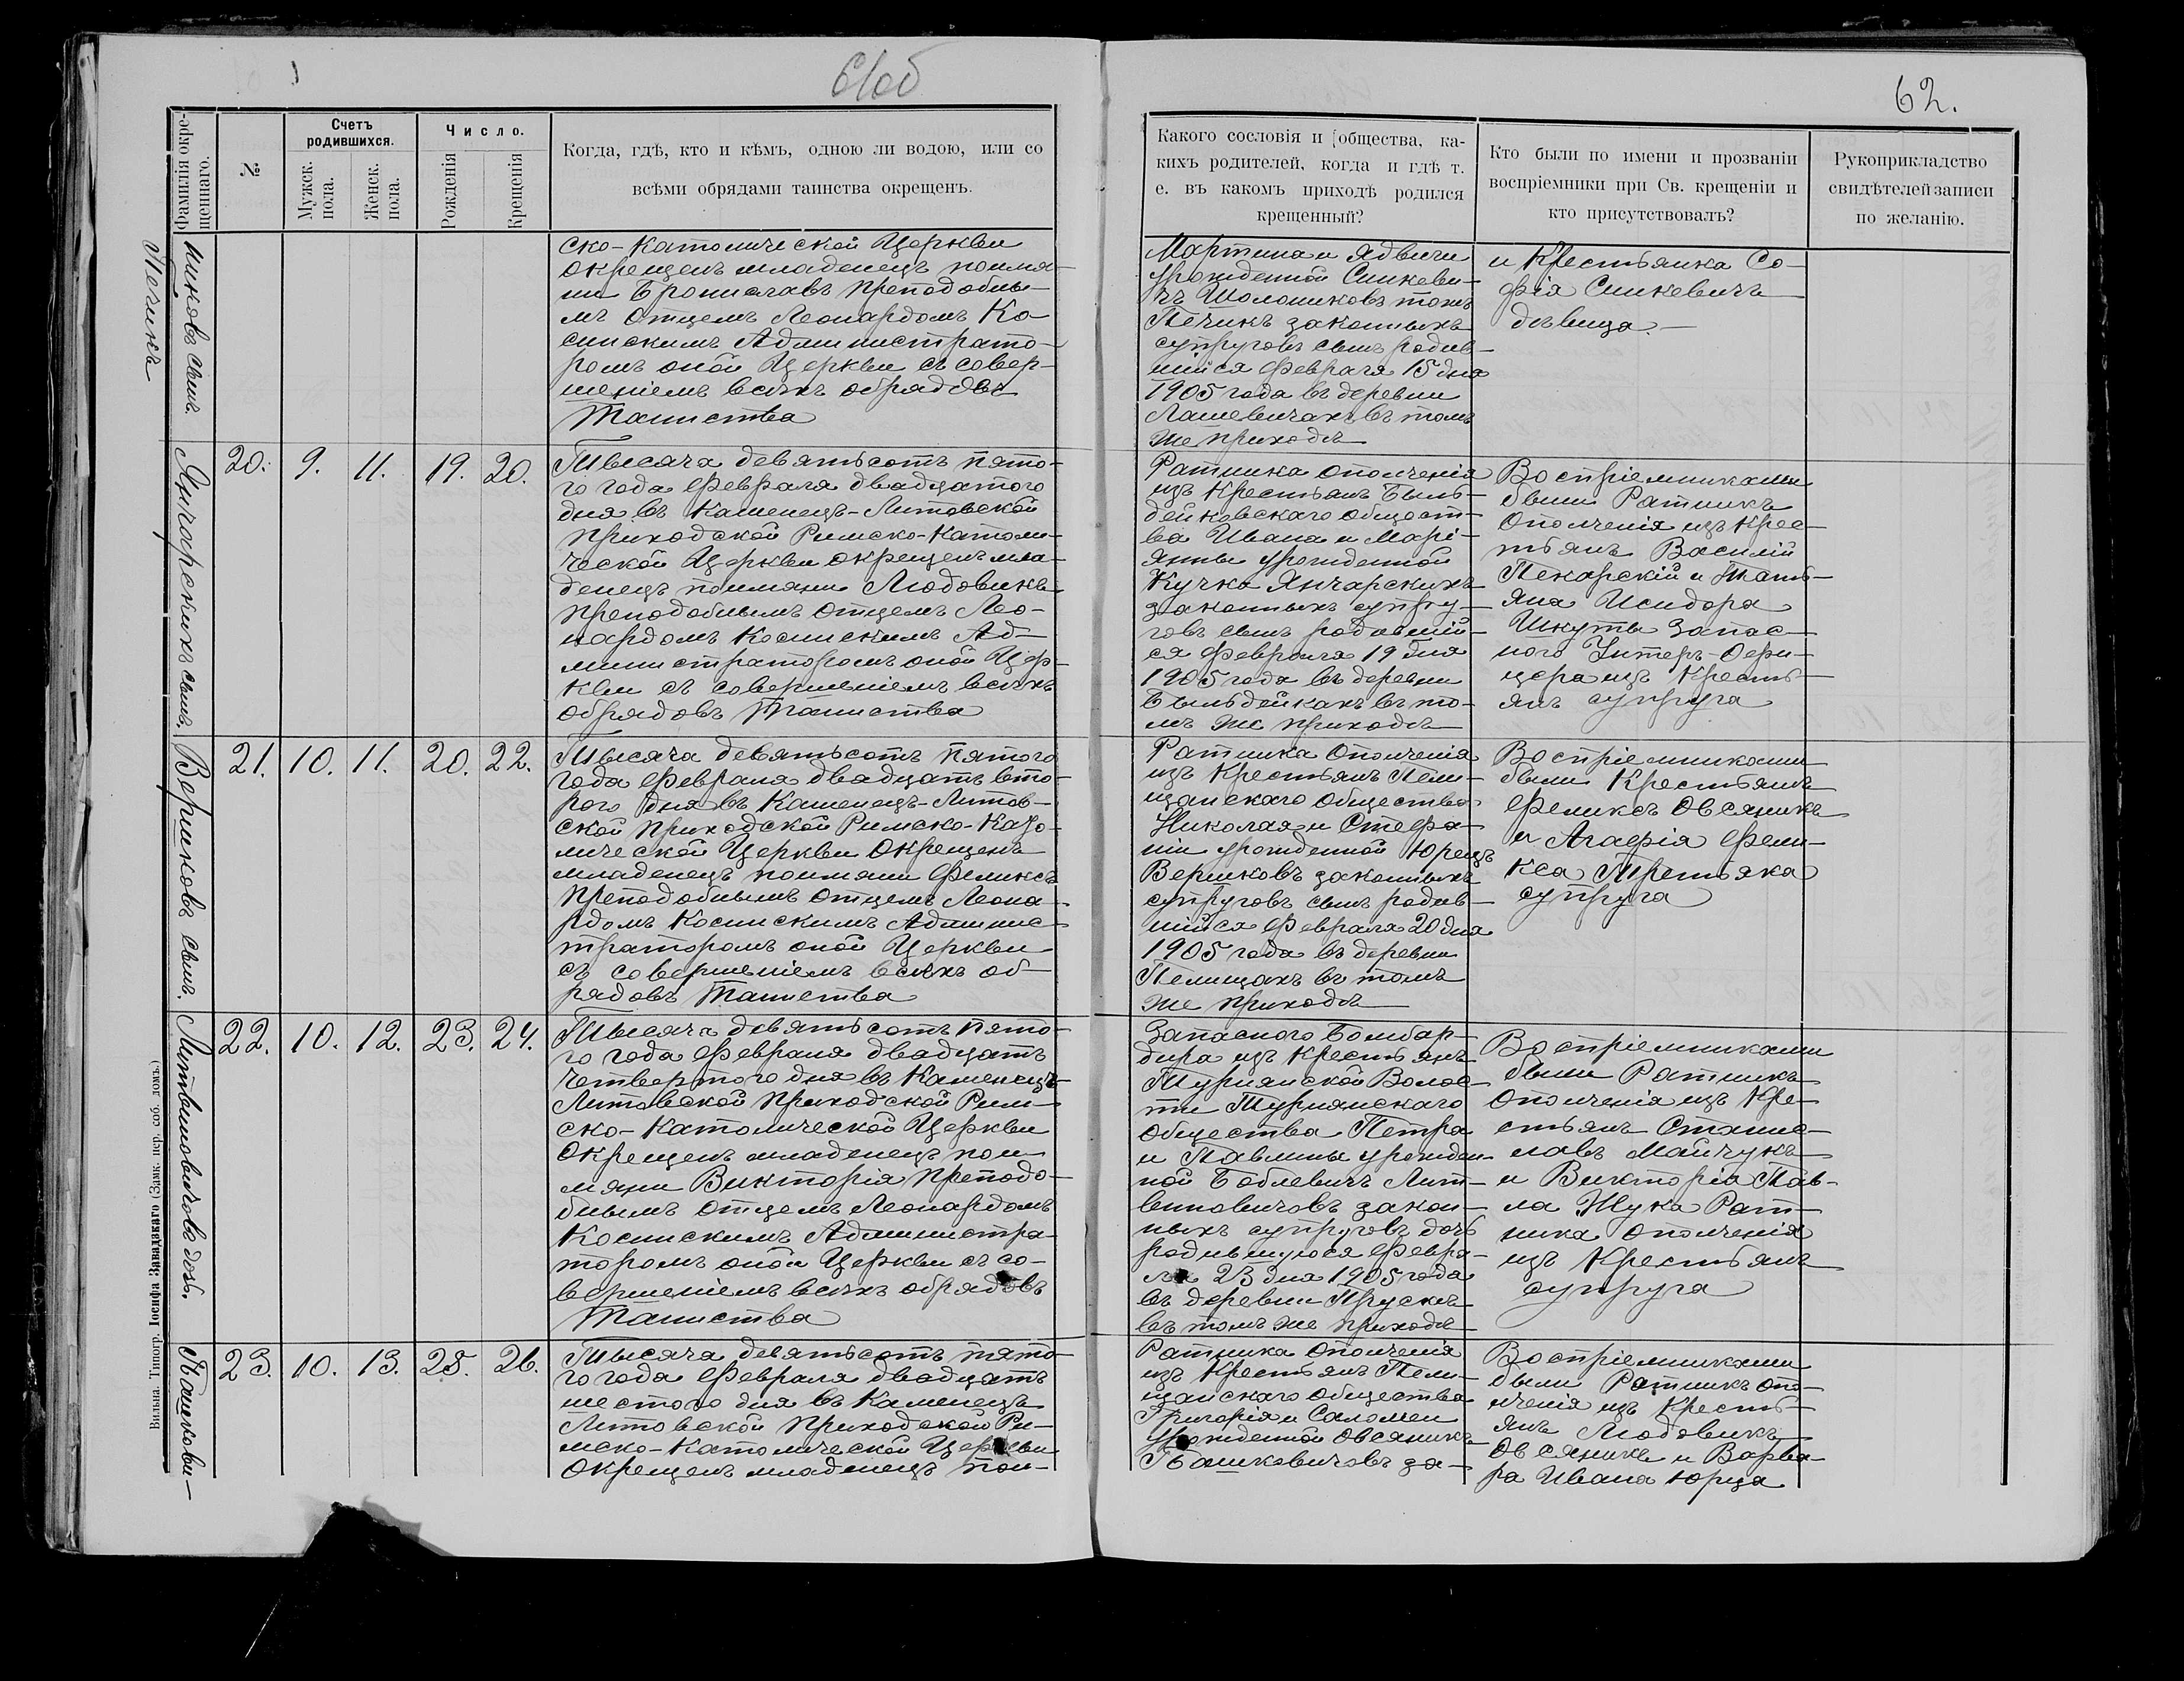 61об
62.
Фамилія окре-
щеннаго.
№
Счетъ
родившихся.
Мужск.
пола.
Женск.
пола.
Число.
Рожденія
Крещенія
Когда, гдѣ, кто и кѣмъ, одною ли водою, или со
всѣми обрядами таинства окрещенъ.
Какого сословія и общества, ка-
кихъ родителей, когда и гдѣ т.
е. въ какомъ приходѣ родился
крещенный?
Кто были по имени и прозваніи
воспріемники при Св. крещеніи и
кто присутствовалъ?
Рукоприкладство
свидѣтелей записи
по желанію.
никовъ сынъ.
Печикъ
ско-Католической Церкви
окрещенъ младенецъ поимя-
ни Брониславъ Преподобны-
мъ Отцемъ Леонардомъ Ко-
синскимъ Администрато-
ромъ оной Церкви съ совер-
шеніемъ всѣхъ обрядовъ
Таинства
Мартина и Ядвиги
урожденной Синкеви-
чъ Шолониковъ тожъ
Печикъ законныхъ
супруговъ сынъ родив-
шійся Февраля 15 дня
1905 года въ деревни
Лашевичахъ въ томъ
же приходѣ
и Крестьянка Со-
фія Синкевичъ
дѣвица.
Янчарскихъ сынъ.
20. 9. 11. 19. 20.
Тысяча девятьсотъ пято-
го года Февраля двадцатого
дня въ Каменецъ-Литовской
Приходской Римско-Католи-
ческой Церкви окрещенъ мла-
денецъ поимяни Людовикъ
Преподобнымъ Отцемъ Лео-
нардомъ Косинскимъ Ад-
министраторомъ оной Цер-
кви съ совершеніемъ всѣхъ
обрядовъ Таинства
Ратника Ополченія
изъ Крестьянъ Быль-
дейковскаго общест-
ва Ивана и Марі-
янны урожденной
Кучко Янчарскихъ
законныхъ супру-
говъ сынъ родивший-
ся Февраля 19 дня
1905 года въ деревни
Быльдейкахъ въ то-
мъ же приходѣ
Воспріемниками
были Ратникъ
Ополченія изъ Крес-
тьянъ Василій
Пекарскій и Тать-
яна Исидора
Шкуты Запас-
ного Унтеръ-Офи-
цера изъ Кресть-
янъ супруга
Вериковъ сынъ.
21. 10. 11. 20. 22.
Тысяча девятьсотъ пятого
года Февраля двадцать вто-
рого дня въ Каменецъ-Литов-
ской Приходской Римско-Като-
лической Церкви Окрещенъ
младенецъ поимяни Феликсъ
Преподобнымъ Отцемъ Леона-
рдомъ Косинскимъ Админис-
траторомъ оной Церкви
съ совершеніемъ всѣхъ об-
рядовъ Таинства
Ратника Ополченія
изъ Крестьянъ Пели-
щанскаго Общества
Николая и Стефа-
ніи урожденной Юрецъ
Вериковъ законныхъ
супруговъ сынъ родив-
шійся Февраля 20 дня
1905 года въ деревни
Пелищахъ въ томъ
же приходѣ
Воспріемниками
были Крестьянъ
Феликсъ Овсяникъ
и Агафія Фели-
кса Третьяка
супруга
Литвиновичовъ дочь.
22. 10. 12. 23. 24.
Тысяча девятьсотъ пято-
го года Февраля двадцать
четвертого дня въ Каменецъ-
Литовской Приходской Рим-
ско-Католической Церкви
Окрещенъ младенецъ пои-
мяни Викторія Преподо-
бнымъ Отцемъ Леонардомъ
Косинскимъ Администра-
торомъ оной Церкви съ со-
вершеніемъ всѣхъ обрядовъ
Таинства
Запасного Бомбар-
дира изъ Крестьянъ
Турнянской Волос-
ти Турнянскаго
Общества Петра
и Павлины урожден-
ной Боблевичъ Лит-
виновичовъ закон-
ныхъ супруговъ дочь
родившуюся Февра-
ля 23 дня 1905 года
въ деревни Прускѣ
въ томъ же приходѣ
Воспріемниками
были Ратникъ
Ополченія изъ Кре-
стьянъ Станис-
лавъ Майчукъ
и Викторія Пав-
ла Жука Рат-
ника Ополченія
изъ Крестьянъ
супруга
Башкови-
23. 10. 13. 25. 26.
Тысяча девятьсотъ пято-
го года Февраля двадцать
шестого дня въ Каменецъ
Литовской Приходской Ри-
мско-Католической Церкви
Окрещенъ младенецъ пои-
Ратника Ополченія
изъ Крестьянъ Пели-
щанскаго Общества
Григорія и Саломеи
Урожденной Овсяникъ
Башковичовъ за-
Воспріемниками
были Ратникъ Опо-
лченія изъ Кресть-
янъ Людовикъ
Овсяникъ и Варва-
ра Ивана Юреца
Вильна. Типогр. Іосифа Завадзкаго (Замк. пер. соб. домъ.)